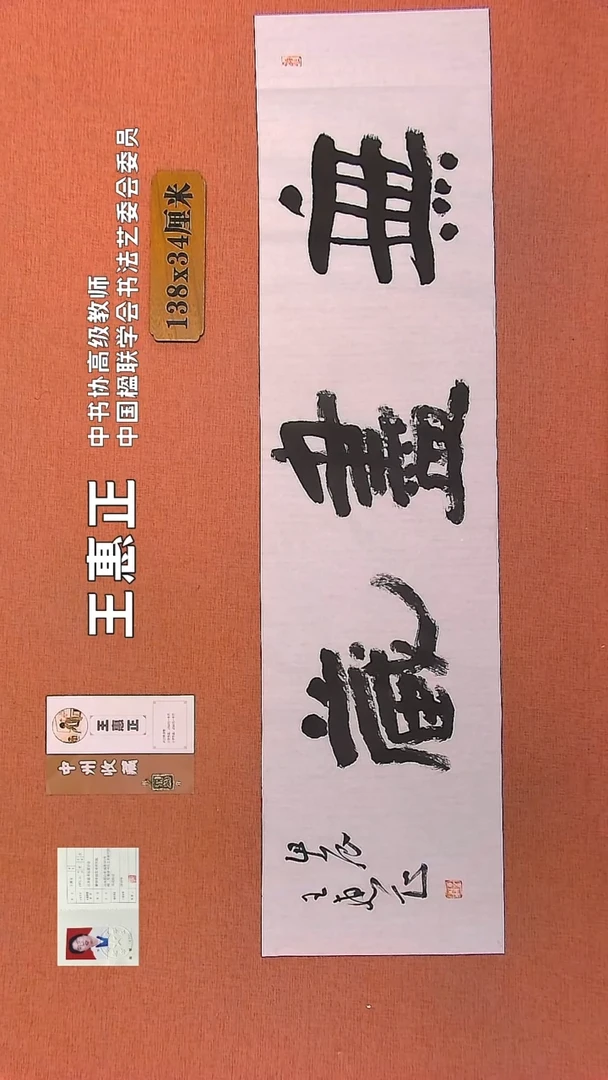 王惠正
中书协高级教师
中国楹联学会书法艺委会委员
138x34厘米
王惠正
中州收藏
無盡藏
甲辰
王惠正